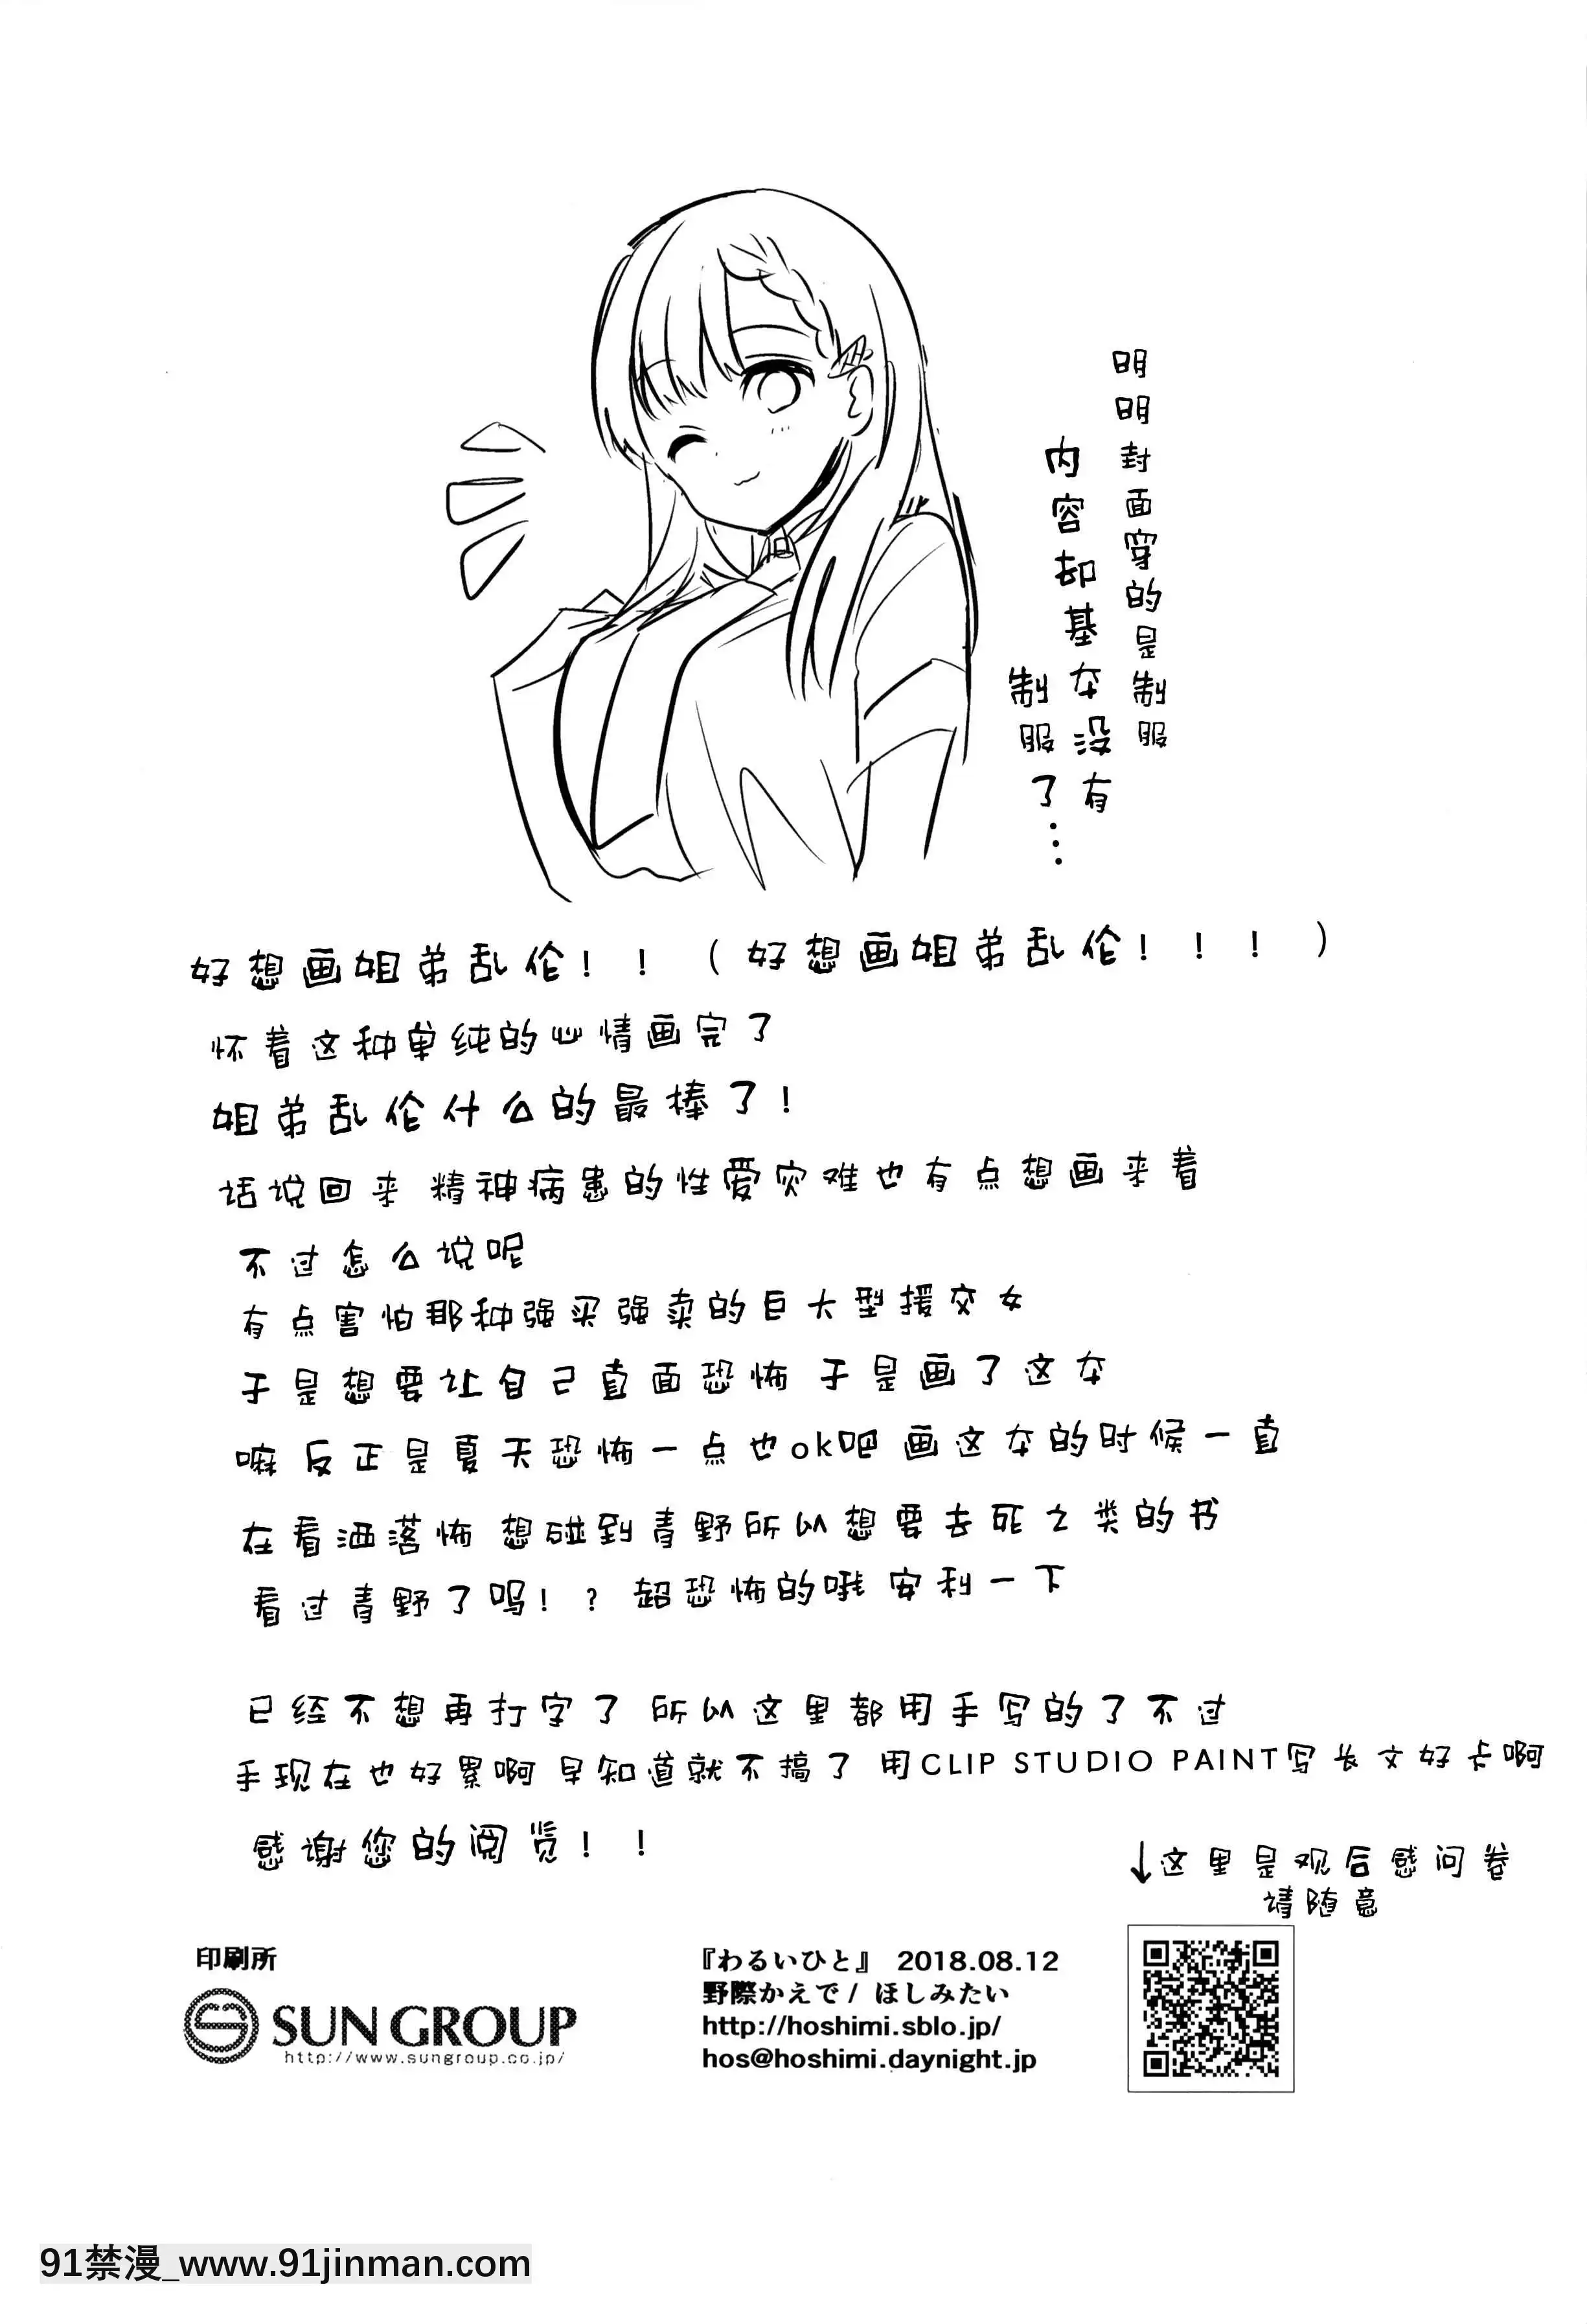 明明封面穿的是制服
内容却基本没有
制服了…
好想画姐弟乱伦！！（好想画姐弟乱伦！！！）
怀着这种单纯的心情画完了
姐弟乱伦什么的最棒了！
话说回来 精神病患的性爱灾难也有点想画来着
不过怎么说呢
有点害怕那种强买强卖的巨大型援交女
于是想要让自己直面恐怖 于是画了这本
嘛 反正是夏天恐怖一点也ok吧 画这本的时候一直
在看洒落怖 想碰到青野所以想要去死之类的书
看过青野了吗！？超恐怖的哦 安利一下
已经不想再打字了 所以这里都用手写的了不过
手现在也好累啊 早知道就不搞了 用CLIP STUDIO PAINT写长文好卡啊
感谢您的阅览！！
↓这里是观后感问卷
请随意
印刷所
SUN GROUP
http://www.sungroup.co.jp/
『わるいひと』 2018.08.12
野際かえで / ほしみたい
http://hoshimi.sblo.jp/
hos@hoshimi.daynight.jp
91禁漫_www.91jinman.com